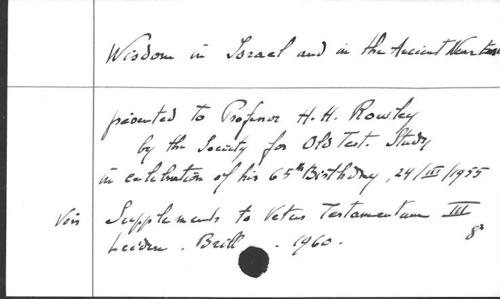 Wisdom in Israel and in the Ancient Near East
presented to Professor H. H. Rowley
by the Society for Old Test. Study
in celebration of his 65th Birthday, 24/III/1955
Vois Supplements to Vetus Testamentum III
Leiden. Brill. 1960. 8°